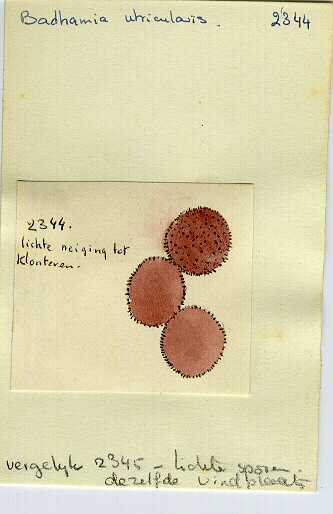 Badhamia utricularis. 2344
2344.
lichte neiging tot
klonteren.
vergelyk 2345 - lichte sporen.
dezelfde vindplaats